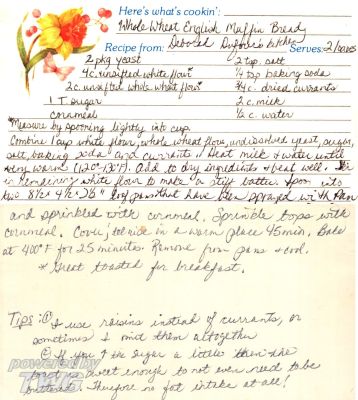 Here's what's cookin':
Whole Wheat English Muffin Bread
Recipe from: Deborah Kitchen
Serves: 2 loaves
2 pkg yeast 2 tsp. salt
4 c. unsifted white flour* 1/4 tsp baking soda
2 c. unsifted whole wheat flour* 3/4 c. dried currants
1 T. sugar 2 c. milk
cornmeal 1/2 c. water
*Measure by spooning lightly into cup
Combine 1 cup white flour, whole wheat flour, undissolved yeast, sugar,
salt, baking soda and currants. Heat milk & water until
very warm (120°-130°F). Add to dry ingredients & beat well. Stir
in remaining white flour to make a stiff batter. Spoon into
two 8½ x 4½ x 2½" loaf pans that have been sprayed with Pam
and sprinkled with cornmeal. Sprinkle tops with
cornmeal. Cover; let rise in a warm place 45 min. Bake
at 400°F for 25 minutes. Remove from pans & cool.
* Great toasted for breakfast.
Tips: ① I use raisins instead of currants, or
sometimes I omit them altogether
② If you ↑ the sugar a little then the
bread is sweet enough to not even need to be
buttered! Therefore no fat intake at all!
powered by
TWG